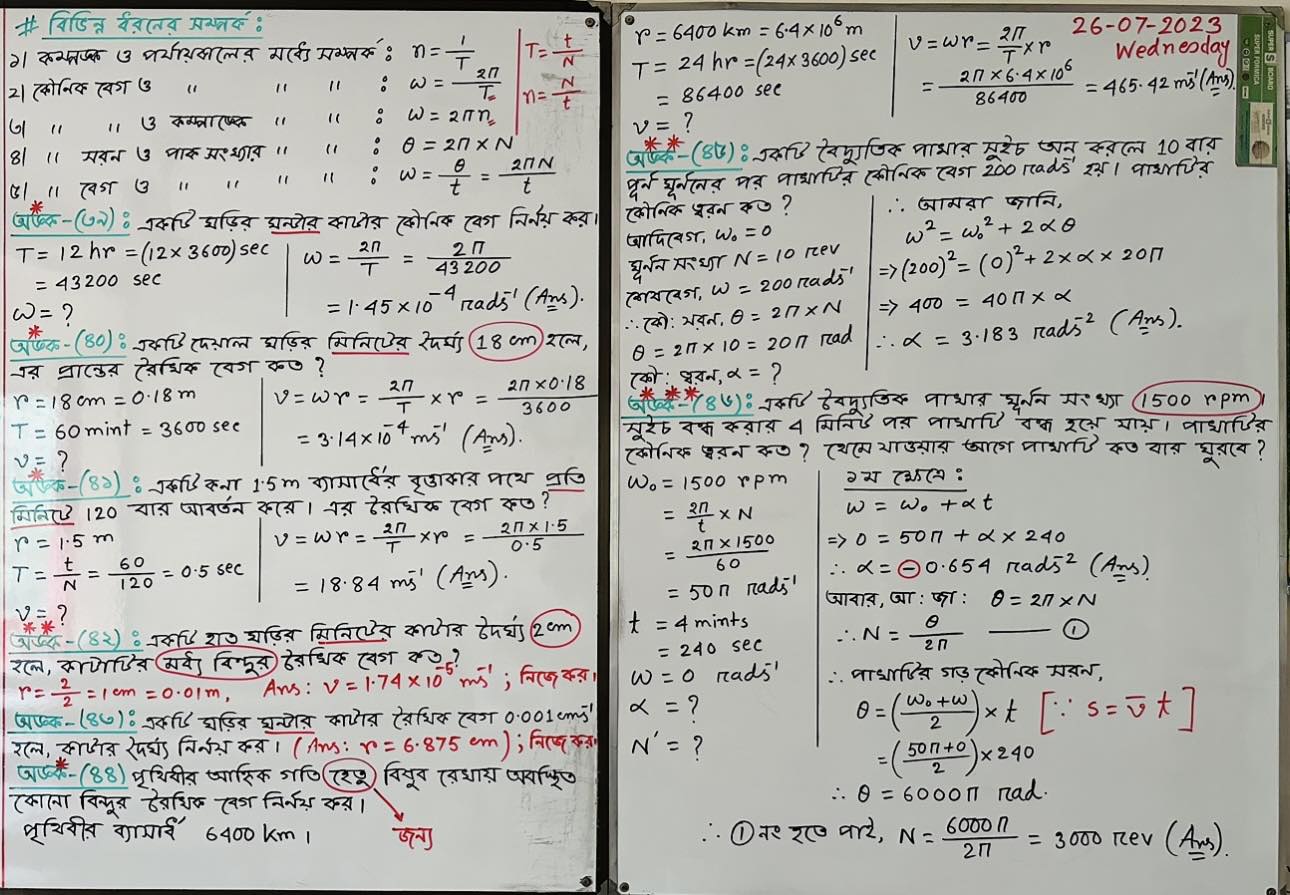 # বিভিন্ন ধরনের সম্পর্ক :
১। কম্পাঙ্ক ও পর্যায়কালের মধ্যে সম্পর্ক : n = 1/T
T = t/N
n = N/t
২। কৌনিক বেগ ও " " " : ω = 2π/T
৩। " " ও কম্পাঙ্কের " " : ω = 2πn
৪। " সরন ও পাক সংখ্যার " " : θ = 2π × N
৫। " বেগ ও " " " " : ω = θ/t = 2πN/t
অঙ্ক-(৩৯) : একটি ঘড়ির ঘন্টার কাটার কৌনিক বেগ নির্নয় কর।
T = 12 hr = (12 × 3600) sec
= 43200 sec
ω = ?
ω = 2π/T = 2π/43200
= 1.45 × 10⁻⁴ rads⁻¹ (Ans).
অঙ্ক-(৪০) : একটি দেয়াল ঘড়ির মিনিটের দৈর্ঘ্য 18 cm হলে,
এর প্রান্তের রৈখিক বেগ কত ?
r = 18 cm = 0.18 m
T = 60 mint = 3600 sec
v = ?
v = ωr = 2π/T × r = 2π × 0.18/3600
= 3.14 × 10⁻⁴ ms⁻¹ (Ans).
অঙ্ক-(৪১) : একটি কনা 1.5 m ব্যাসার্ধের বৃত্তাকার পথে প্রতি
মিনিটে 120 বার আবর্তন করে। এর রৈখিক বেগ কত ?
r = 1.5 m
T = t/N = 60/120 = 0.5 sec
v = ?
v = ωr = 2π/T × r = 2π × 1.5/0.5
= 18.84 ms⁻¹ (Ans).
অঙ্ক-(৪২) : একটি হাত ঘড়ির মিনিটের কাটার দৈর্ঘ্য 2 cm
হলে, কাটাটির মধ্য বিন্দুর রৈখিক বেগ কত ?
r = 2/2 = 1 cm = 0.01 m, Ans : v = 1.74 × 10⁻⁵ ms⁻¹ ; নিজে কর।
অঙ্ক-(৪৩) : একটি ঘড়ির ঘন্টার কাটার রৈখিক বেগ 0.001 cms⁻¹
হলে, কাটার দৈর্ঘ্য নির্নয় কর। (Ans : r = 6.875 cm) ; নিজে কর।
অঙ্ক-(৪৪) পৃথিবীর আহ্নিক গতি হেতু বিষুব রেখায় অবস্থিত
কোনো বিন্দুর রৈখিক বেগ নির্নয় কর।
পৃথিবীর ব্যাসার্ধ 6400 km।
জন্য
r = 6400 km = 6.4 × 10⁶ m
T = 24 hr = (24 × 3600) sec
= 86400 sec
v = ?
v = ωr = 2π/T × r
= 2π × 6.4 × 10⁶/86400 = 465.42 ms⁻¹ (Ans).
26-07-2023
Wednesday
SUPER S BOARD
SUPER FORMICA
অঙ্ক-(৪৫) : একটি বৈদ্যুতিক পাখার সুইচ অন করলে 10 বার
পূর্ন ঘূর্ননের পর পাখাটির কৌনিক বেগ 200 rads⁻¹ হয়। পাখাটির
কৌনিক ত্বরন কত ?
আদিবেগ, ω₀ = 0
ঘূর্নন সংখ্যা N = 10 rev
শেষবেগ, ω = 200 rads⁻¹
∴ কৌ: সরন, θ = 2π × N
θ = 2π × 10 = 20π rad
কৌ: ত্বরন, α = ?
∴ আমরা জানি,
ω² = ω₀² + 2αθ
⇒ (200)² = (0)² + 2 × α × 20π
⇒ 400 = 40π × α
∴ α = 3.183 rads⁻² (Ans).
অঙ্ক-(৪৬) : একটি বৈদ্যুতিক পাখার ঘূর্নন সংখ্যা 1500 rpm।
সুইচ বন্ধ করার 4 মিনিট পর পাখাটি বন্ধ হয়ে যায়। পাখাটির
কৌনিক ত্বরন কত ? থেমে যাওয়ার আগে পাখাটি কত বার ঘুরবে ?
ω₀ = 1500 rpm
= 2π/t × N
= 2π × 1500/60
= 50π rads⁻¹
t = 4 mints
= 240 sec
ω = 0 rads⁻¹
α = ?
N' = ?
১ম ক্ষেত্রে :
ω = ω₀ + αt
⇒ 0 = 50π + α × 240
∴ α = −0.654 rads⁻² (Ans)
আবার, আ: জা: θ = 2π × N
∴ N = θ/2π —— ①
∴ পাখাটির গড় কৌনিক সরন,
θ = (ω₀ + ω/2) × t [∵ s = v̄ t]
= (50π + 0/2) × 240
∴ θ = 6000π rad.
∴ ① নং হতে পাই, N = 6000π/2π = 3000 rev (Ans).